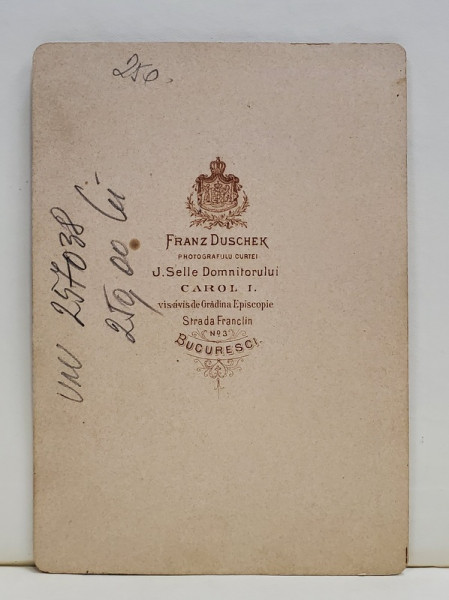 250.
FRANZ DUSCHEK
PHOTOGRAFULU CURTEI
J. Selle Domnitorului
CAROL I.
vis-á-vis de Grădina Episcopie
Strada Franclin
No 3
BUCURESCI.
257038
250 00 lei